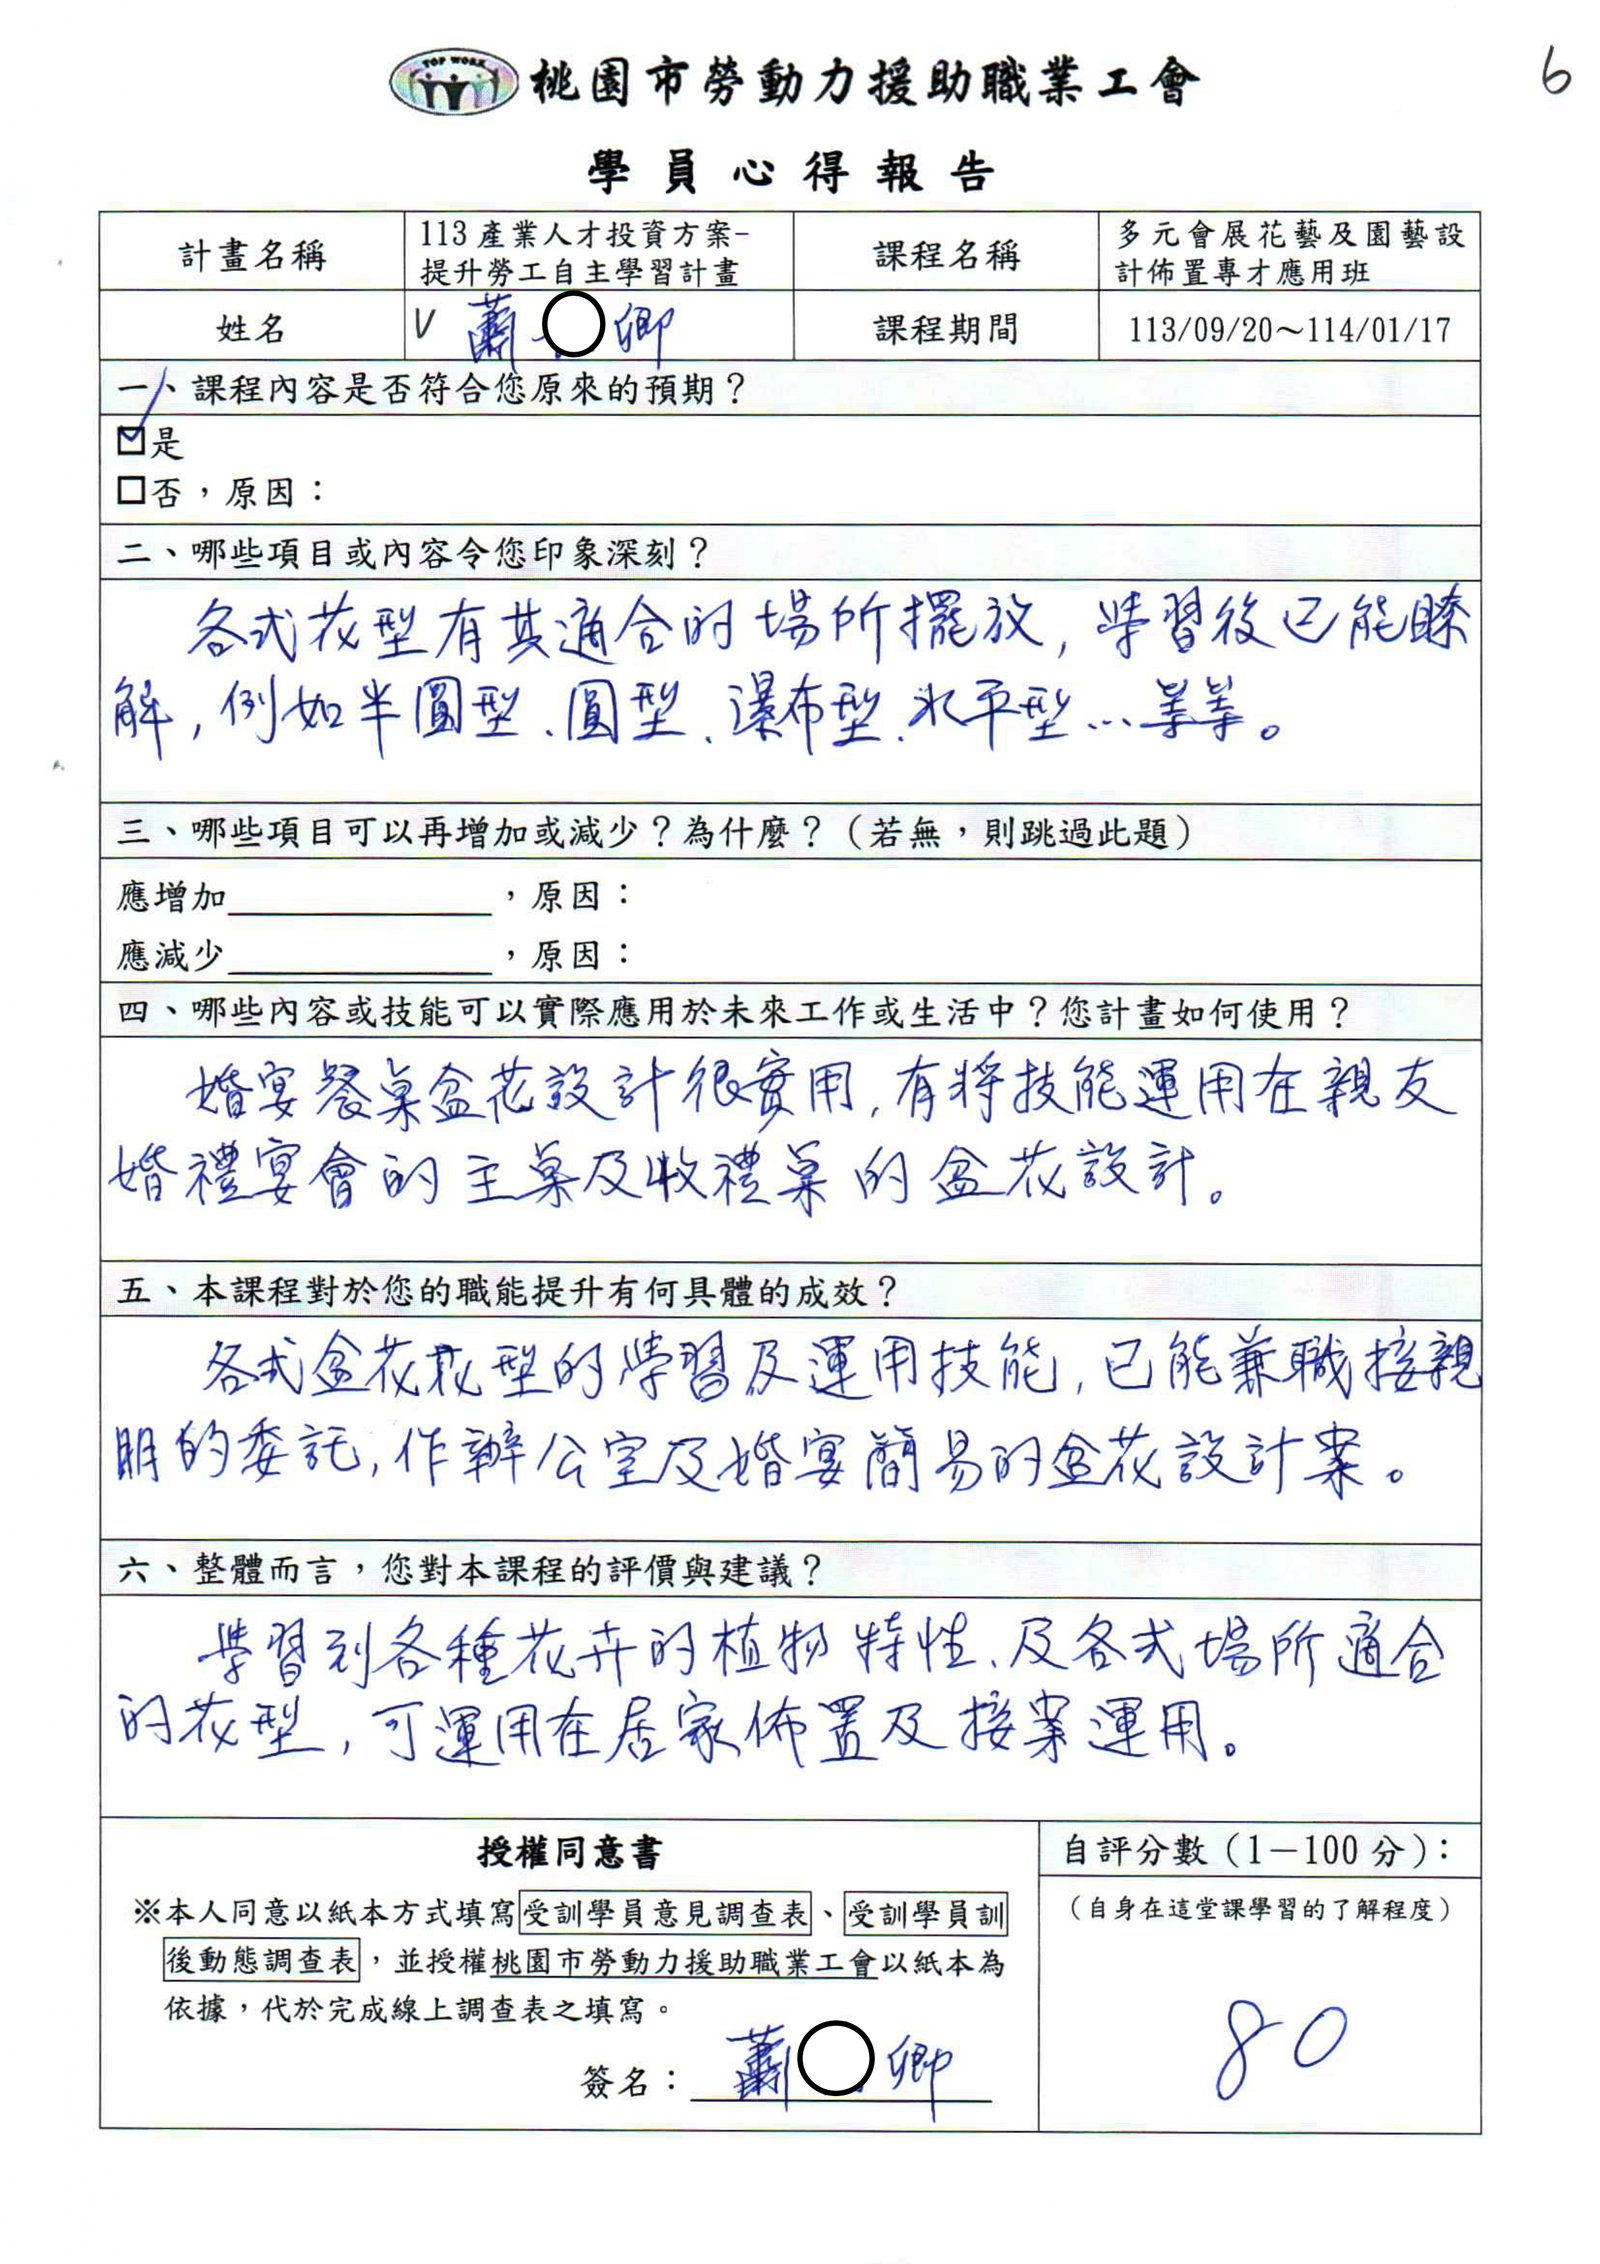 TOP WORK 桃園市勞動力援助職業工會
6
學員心得報告
計畫名稱
113產業人才投資方案-
提升勞工自主學習計畫
課程名稱
多元會展花藝及園藝設
計佈置專才應用班
姓名
V 蕭○卿
課程期間
113/09/20～114/01/17
一、課程內容是否符合您原來的預期？
☑是
□否，原因：
二、哪些項目或內容令您印象深刻？
各式花型有其適合的場所擺放，學習後已能瞭
解，例如半圓型、圓型、瀑布型、水平型…等等。
三、哪些項目可以再增加或減少？為什麼？（若無，則跳過此題）
應增加＿＿＿＿＿＿＿，原因：
應減少＿＿＿＿＿＿＿，原因：
四、哪些內容或技能可以實際應用於未來工作或生活中？您計畫如何使用？
婚宴餐桌盆花設計很實用，有將技能運用在親友
婚禮宴會的主桌及收禮桌的盆花設計。
五、本課程對於您的職能提升有何具體的成效？
各式盆花花型的學習及運用技能，已能兼職接親
朋的委託，作辦公室及婚宴簡易的盆花設計案。
六、整體而言，您對本課程的評價與建議？
學習到各種花卉的植物特性、及各式場所適合
的花型，可運用在居家佈置及接案運用。
授權同意書
※本人同意以紙本方式填寫受訓學員意見調查表、受訓學員訓
後動態調查表，並授權桃園市勞動力援助職業工會以紙本為
依據，代於完成線上調查表之填寫。
簽名：蕭○卿
自評分數（1－100分）：
（自身在這堂課學習的了解程度）
80